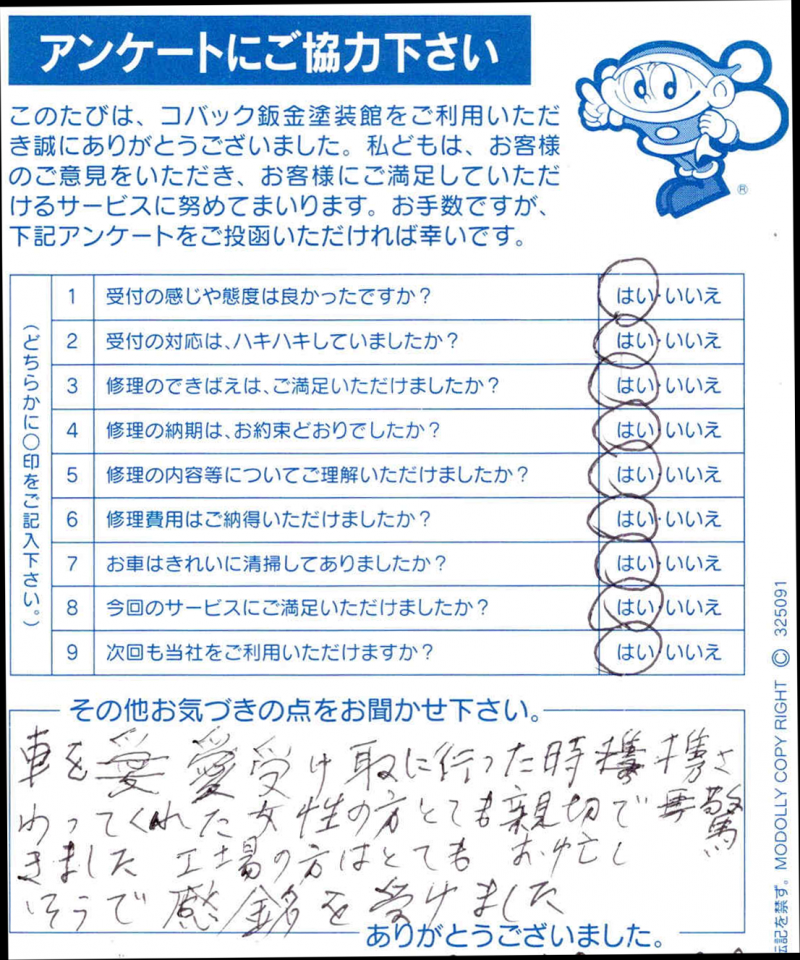 アンケートにご協力下さい
このたびは、コバック鈑金塗装館をご利用いただ
き誠にありがとうございました。私どもは、お客様
のご意見をいただき、お客様にご満足していただ
けるサービスに努めてまいります。お手数ですが、
下記アンケートをご投函いただければ幸いです。
®
(どちらかに〇印をご記入下さい。)
1 受付の感じや態度は良かったですか? はい・いいえ
2 受付の対応は、ハキハキしていましたか? はい・いいえ
3 修理のできばえは、ご満足いただけましたか? はい・いいえ
4 修理の納期は、お約束どおりでしたか? はい・いいえ
5 修理の内容等についてご理解いただけましたか? はい・いいえ
6 修理費用はご納得いただけましたか? はい・いいえ
7 お車はきれいに清掃してありましたか? はい・いいえ
8 今回のサービスにご満足いただけましたか? はい・いいえ
9 次回も当社をご利用いただけますか? はい・いいえ
その他お気づきの点をお聞かせ下さい。
車を受け取に行った時携さ
わってくれた女性の方とても親切で驚
きました 工場の方はとても お忙し
そうで感銘を受けました
ありがとうございました。
転記を禁ず。MODOLLY COPY RIGHT © 325091